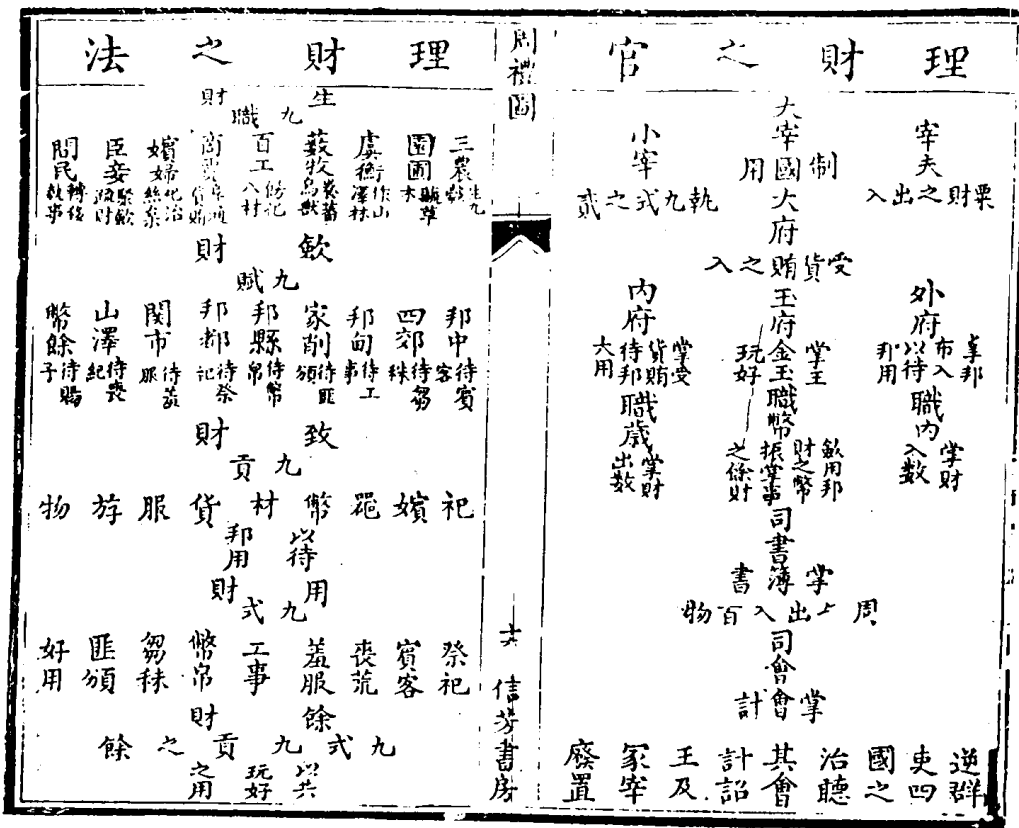 理財之官
大宰
制國用
宰夫
粟財之出入
小宰
執九式之貳
大府
受貨賄之入
外府
掌邦布入以待邦用
玉府
掌王金玉玩好
內府
掌受貨賄待邦大用
職內
掌財入數
職幣
斂用邦財之幣振掌事之餘財
職歲
掌財出數
司書
掌簿書
周上出入百物
司會
掌會計
逆群吏四國之治聽其會計詔王及冢宰廢置
周禮圖
六
信芳書房
理財之法
生財
九職
三農 生九穀
園圃 毓草木
虞衡 作山澤材
藪牧 養蕃鳥獸
百工 飭化八材
商賈 阜通貨賄
嬪婦 化治絲枲
臣妾 聚斂疏財
閒民 轉移執事
斂財
九賦
邦中 待賓客
四郊 待芻秣
邦甸 待工事
家削 待匪頒
邦縣 待幣帛
邦都 待祭祀
関市 待羞服
山澤 待喪紀
幣餘 待賜子
致財
九貢
祀 嬪 噐 幣 材 貨 服 斿 物
以待邦用
用財
九式
祭祀 賓客 喪荒 羞服 工事 幣帛 芻秣 匪頒 好用
餘財
九式九貢之餘
以共玩好之用